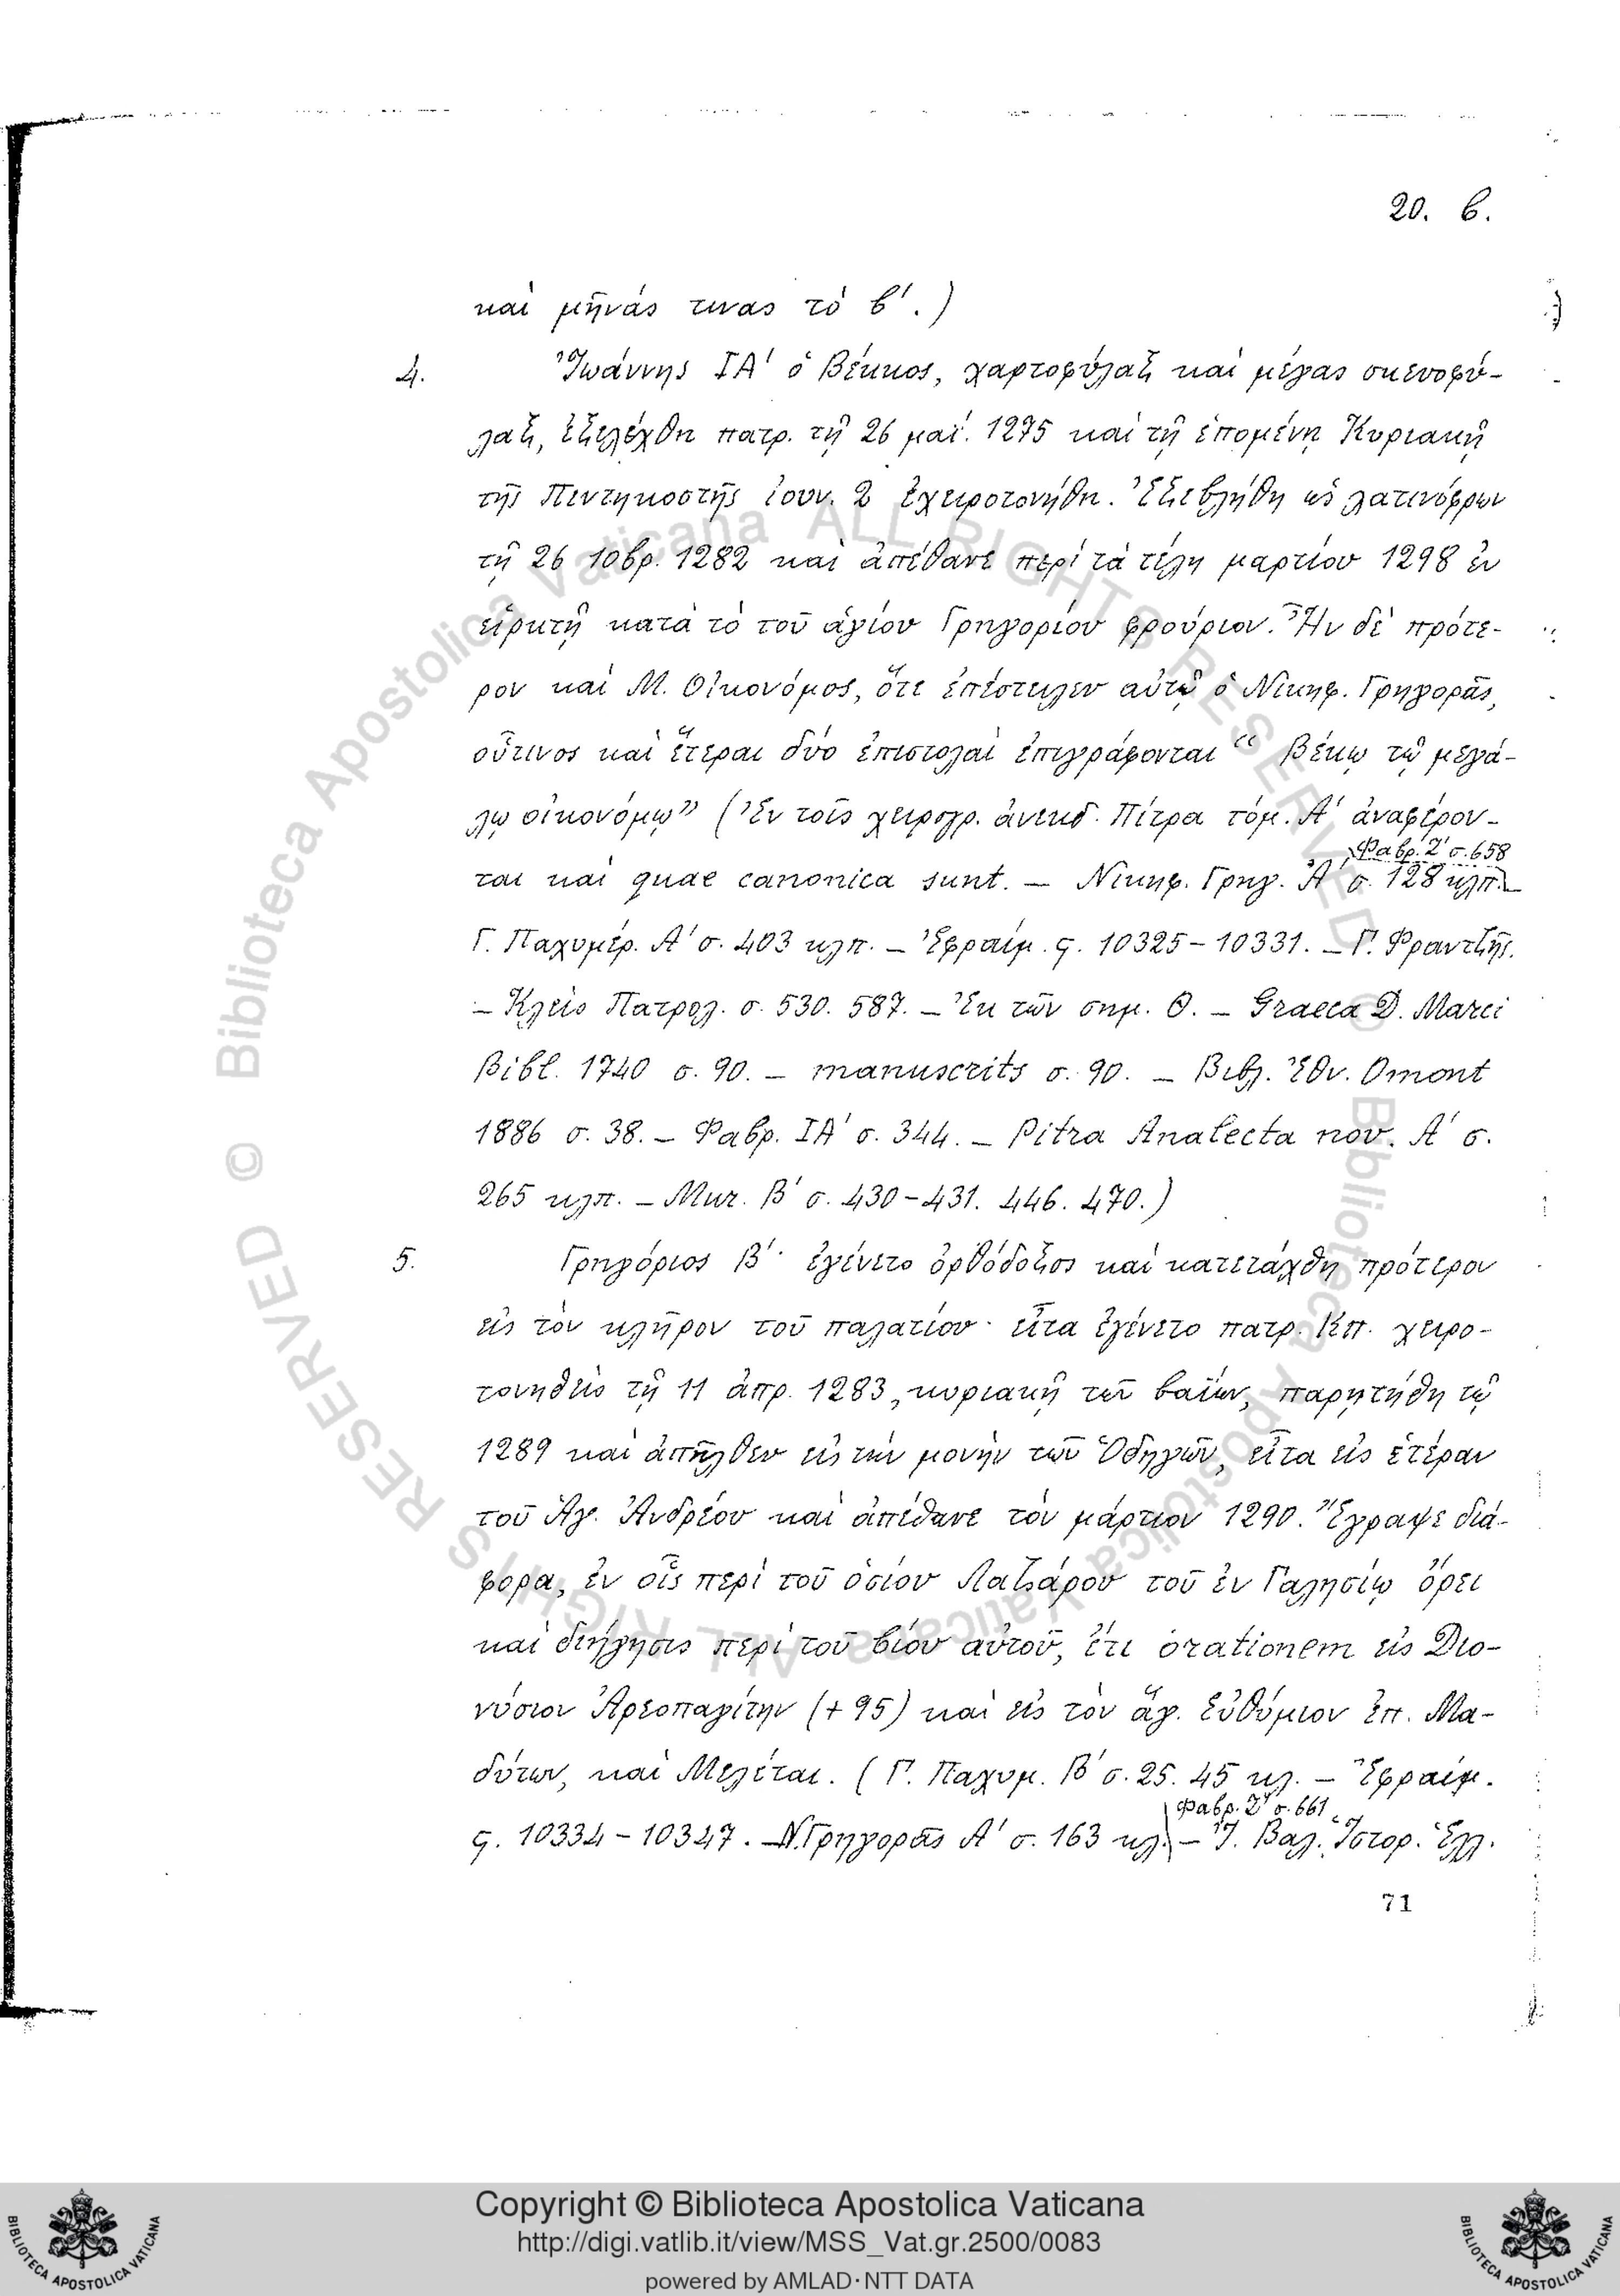 20. β.
καὶ μῆνάς τινας τὸ β΄.)
4. Ἰωάννης ΙΑ΄ ὁ Βέκκος, χαρτοφύλαξ καὶ μέγας σκευοφύ-
λαξ, ἐξελέχθη πατρ. τῇ 26 μαΐ. 1275 καὶ τῇ ἑπομένῃ Κυριακῇ
τῆς Πεντηκοστῆς ἰουν. 2 ἐχειροτονήθη. Ἐξεβλήθη ὡς λατινόφρων
τῇ 26 10βρ. 1282 καὶ ἀπέθανε περὶ τὰ τέλη μαρτίου 1298 ἐν
εἱρκτῇ κατὰ τὸ τοῦ ἁγίου Γρηγορίου φρούριον. Ἦν δὲ πρότε-
ρον καὶ Μ. Οἰκονόμος, ὅτε ἐπέστειλεν αὐτῷ ὁ Νικηφ. Γρηγορᾶς,
οὗτινος καὶ ἕτεραι δύο ἐπιστολαὶ ἐπιγράφονται “ Βέκῳ τῷ μεγά-
λῳ οἰκονόμῳ” (Ἐν τοῖς χειρογρ. ἀνεκδ. Πίτρα τόμ. Α΄ ἀναφέρον-
Φαβρ. Ζ΄ σ. 658
ται καὶ quae canonica sunt. — Νικηφ. Γρηγ. Α΄ σ. 128 κλπ. —
Γ. Παχυμέρ. Α΄ σ. 403 κλπ. — Ἐφραίμ. ς. 10325-10331. — Γ. Φραντζῆς.
— Κλεὶς Πατρολ. σ. 530. 587. — Ἐκ τῶν σημ. Θ. — Graeca D. Marci
Bibl. 1740 σ. 90. — manuscrits σ. 90. — Βιβλ. Ἐθν. Omont
1886 σ. 38. — Φαβρ. ΙΑ΄ σ. 344. — Pitra Analecta nov. Α΄ σ.
265 κλπ. — Mur. Β΄ σ. 430-431. 446. 470.)
5. Γρηγόριος Β΄· ἐγένετο ὀρθόδοξος καὶ κατετάχθη πρότερον
εἰς τὸν κλῆρον τοῦ παλατίου· εἶτα ἐγένετο πατρ. Κπ. χειρο-
τονηθεὶς τῇ 11 ἀπρ. 1283, κυριακῇ τῶν βαΐων, παρητήθη τῷ
1289 καὶ ἀπῆλθεν εἰς τὴν μονὴν τῶν Ὁδηγῶν, εἶτα εἰς ἑτέραν
τοῦ Ἁγ. Ἀνδρέου καὶ ἀπέθανε τὸν μάρτιον 1290. Ἔγραψε διά-
φορα, ἐν οἷς περὶ τοῦ ὁσίου Λαζάρου τοῦ ἐν Γαλησίῳ ὄρει
καὶ διήγησις περὶ τοῦ βίου αὐτοῦ, ἔτι orationem εἰς Διο-
νύσιον Ἀρεοπαγίτην (+ 95) καὶ εἰς τὸν ἅγ. Εὐθύμιον ἐπ. Μα-
δύτων, καὶ Μελέται. (Γ. Παχυμ. Β΄ σ. 25. 45 κλ. — Ἐφραίμ.
Φαβρ. Ζ΄ σ. 661
ς. 10334-10347. — Ν. Γρηγορᾶς Α΄ σ. 163 κλ. — Ἰ. Βαλ. Ἱστορ. Ἑλλ.
71
Copyright © Biblioteca Apostolica Vaticana
http://digi.vatlib.it/view/MSS_Vat.gr.2500/0083
powered by AMLAD·NTT DATA